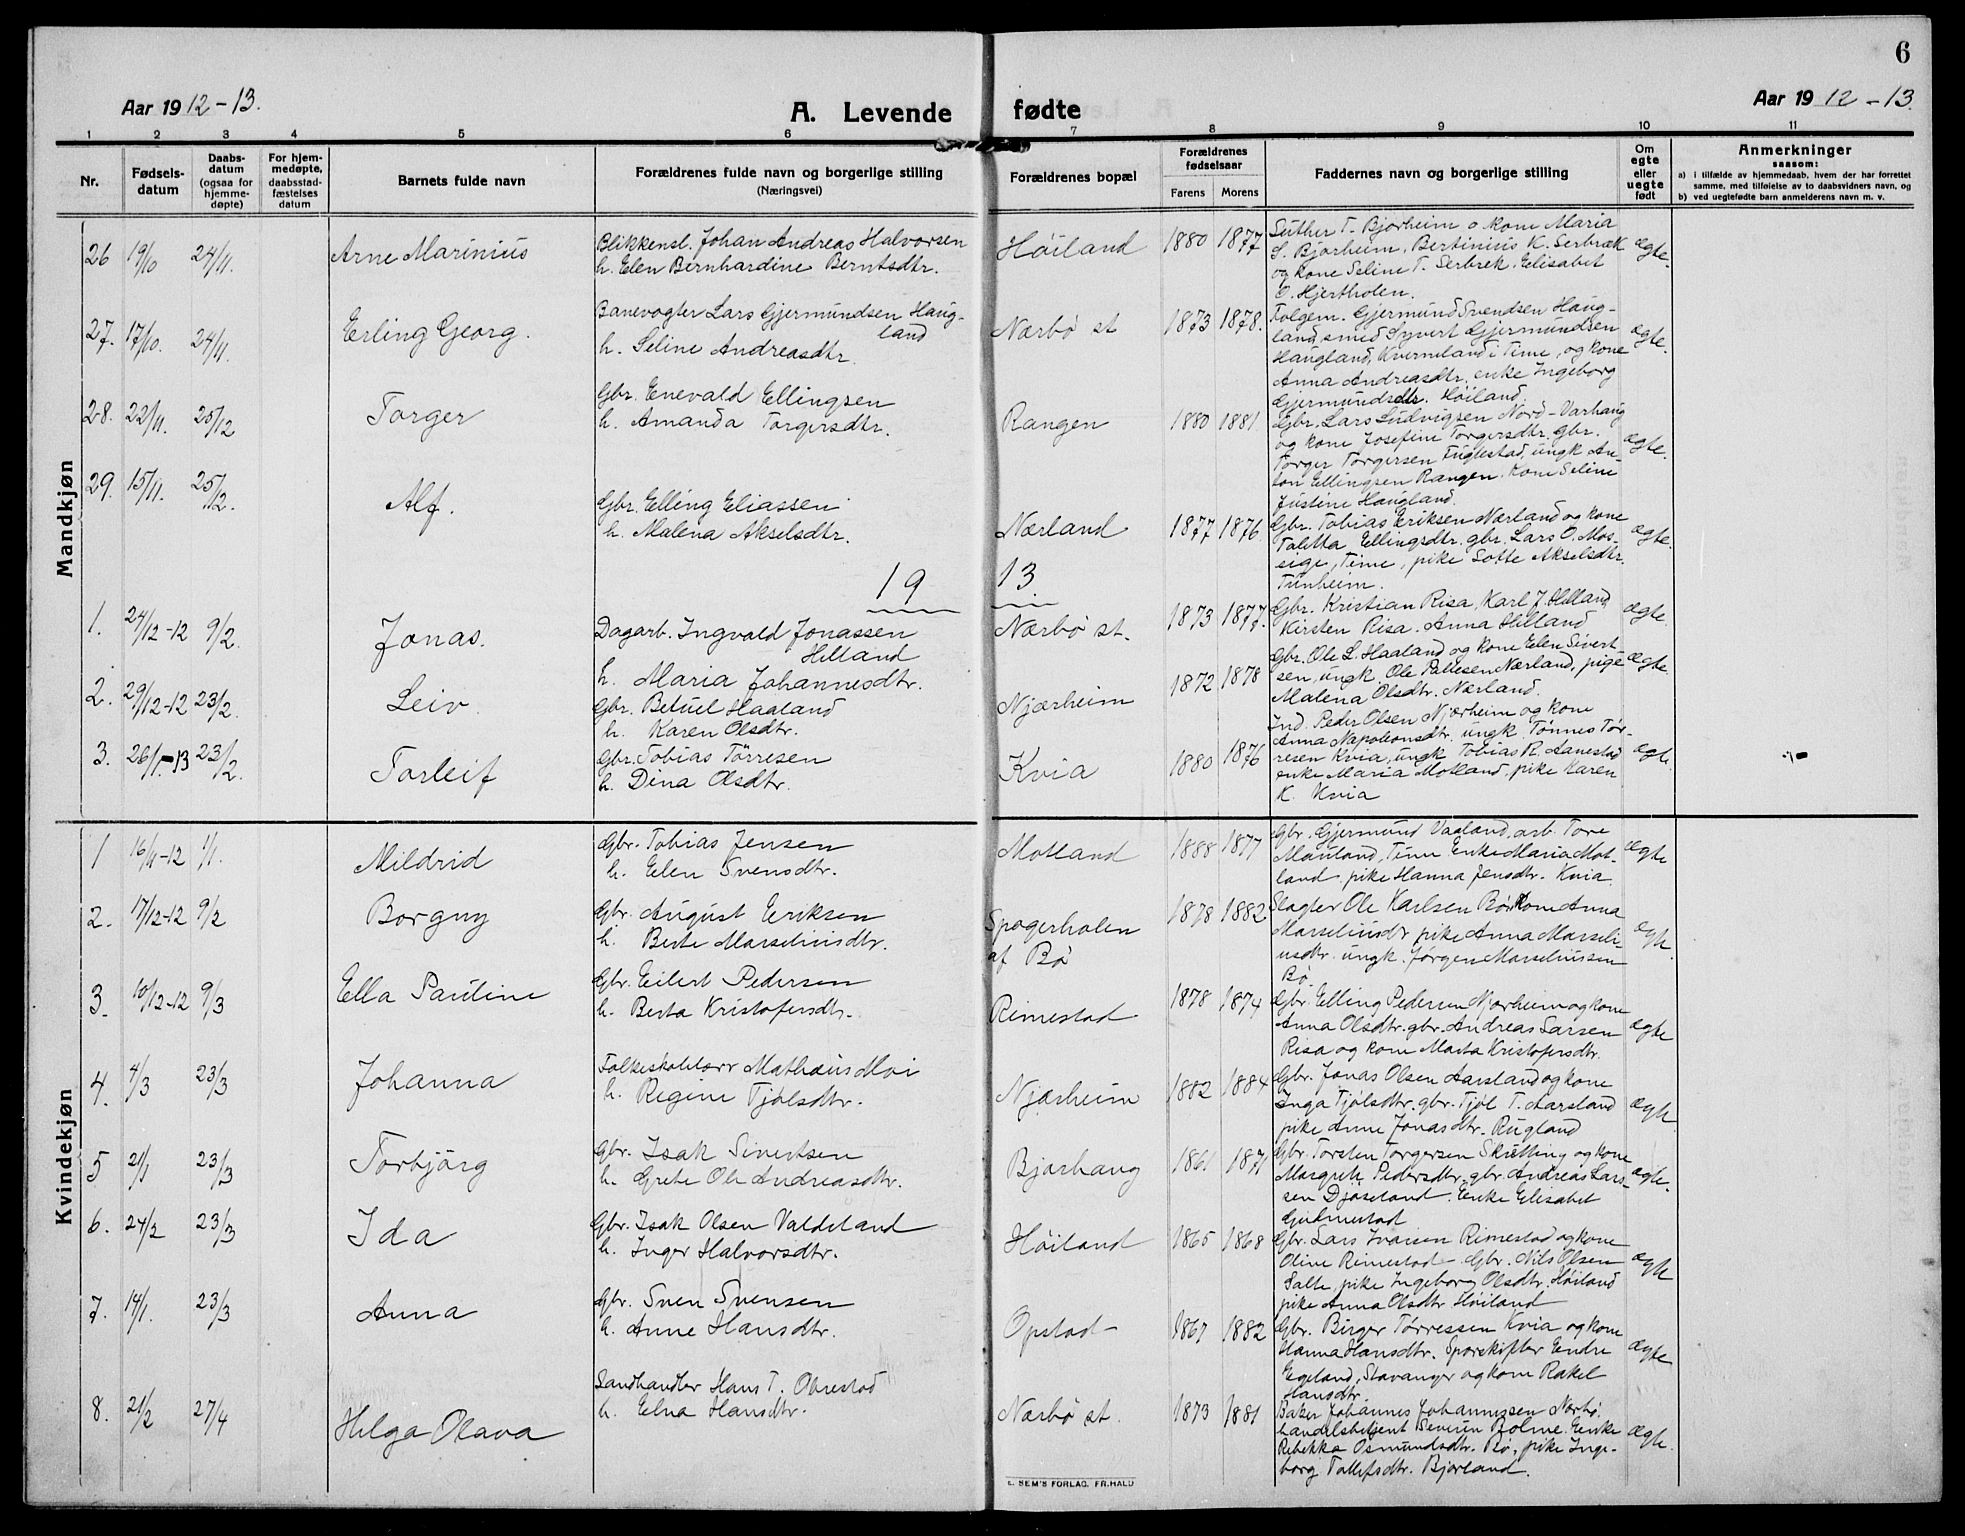 6
Aar 1912-13.
A. Levende fødte
Aar 1912-13.
1 2 3 4 5 6 7 8 9 10 11
Nr.
Fødsels-
datum
Daabs-
datum
(ogsaa for
hjemme-
døpte)
For hjem-
medøpte,
daabsstad-
fæstelses
datum
Barnets fulde navn
Forældrenes fulde navn og borgerlige stilling
(Næringsvei)
Forældrenes bopæl
Forældrenes
fødselsaar
Farens Morens
Faddernes navn og borgerlige stilling
Om
egte
eller
uegte
født
Anmerkninger
saasom:
a) i tilfælde av hjemmedaab, hvem der har forrettet
samme, med tilføielse av to daabsvidners navn, og
b) ved uegtefødte barn anmelderens navn m. v.
Mandkjøn
26 19/10 24/11. Arne Marinius
Blikkensl. Johan Andreas Halvorsen
h. Elen Bernhardine Berntsdtr.
Høiland 1880 1877
Suther T. Bjorheim o kone Maria
S. Bjorheim, Bertinius K. Serbræk
og kone Seline T. Serbrek. Elisabet
O. Hjertholen.
ægte.
27. 17/10. 24/11. Erling Georg.
Banevogter Lars Gjermundsen Haug-
land
h. Seline Andreasdtr.
Nærbø st 1873 1878.
Folgem. Gjermund Svendsen Haug-
land, smed Syvert Gjermundsen
Haugland, Kverneland i Time, og kone
Anna Andreasdtr. enke Ingeborg
Gjermundsdtr. Høiland.
ægte.
28. 22/11. 25/12 Torger
Gbr. Enevald Ellingsen
h. Amanda Torgersdtr.
Rangen 1880 1881
Gbr. Lars Ludvigsen Nord-Varhaug
og kone Josefine Torgersdtr. gbr.
Torger Torgersen Fuglestad, ungk An-
ton Ellingsen Rangen. Kone Seline
Justine Haugland.
ægte.
29. 15/11. 25/12. Alf.
Gbr. Elling Eliassen
h. Malena Akselsdtr.
Nærland 1877 1876
Gbr. Tobias Eriksen Nærland og kone
Taletta Ellingsdtr. gbr. Lars O. Mos-
sige, Time, pike Sofie Akselsdtr.
Tunheim.
ægte.
19 13.
1. 24/12-12 9/2. Jonas.
Dagarb. Ingvald Jonassen
Hilland
h. Maria Johannesdtr.
Nærbø st. 1873 1877.
Gbr. Kristian Risa, Karl J. Hilland
Kirsten Risa. Anna Hilland
ægte.
2. 29/12-12 23/2. Leiv
Gbr. Betuel Haaland
h. Karen Olsdtr.
Njærheim 1872 1878
Gbr. Ole L. Haaland og kone Elen Sivert-
sen, ungk. Ole Pallesen Nærland, pige
Malena Olsdtr. Nærland.
ægte.
3. 26/1-13 23/2. Torleif
Gbr. Tobias Tørresen
h. Dina Olsdtr.
Kvia 1880 1876
Ind. Peder Olsen Njærheim og kone
Anna Napoleonsdtr. ungk. Tønnes Tør-
resen Kvia, ungk Tobias R. Aanestad
enke Maria Motland. pike Karen
K. Kvia
ægte.
Kvindekjøn
1 16/11-12 1/1. Mildrid
Gbr. Tobias Jensen
h. Elen Svensdtr.
Motland 1888 1877
Gbr. Gjermund Vaaland, arb. Tore
Mauland, Time Enke Maria Mot-
land. pike Hanna Jensdtr. Kvia.
ægte
2. 17/12-12 9/2 Borgny
Gbr. August Eriksen
h. Berte Marseliusdtr.
Spogerholen
af Bø
1878 1882
Slagter Ole Karlsen Bø Kone Anna
Marseliusdtr pike Anna Marseli-
usdtr. ungk. Jørgen Marseliussen
Bø.
ægte.
3. 10/12-12 9/3 Ella Pauline
Gbr. Eilert Pedersen
h. Berta Kristofersdtr.
Rimestad 1878 1874
Gbr. Elling Pedersen Njærheim og kone
Anna Olsdtr. gbr. Andreas Larsen
Risa og kone Marta Kristofersdtr.
ægte
4. 4/3 23/3 Johanna
Folkeskolelærer Mathæus Moi
h. Regine Tjølsdtr.
Njærheim 1882 1884
Gbr. Jonas Olsen Aarsland og kone
Inga Tjølsdtr. gbr. Tjøl T. Aarsland
pike Anne Jonasdtr. Rugland
ægte.
5 21/1 23/3 Torbjørg
Gbr. Isak Sivertsen
h. Grete Ole Andreasdtr.
Bjorhaug 1861 1871
Gbr. Torsten Torgersen Skretting og kone
Margrete Pedersdtr. gbr. Andreas Lars-
sen Djøseland. Enke Elisabet
Gudmestad
ægte.
6. 24/2 23/3 Ida
Gbr. Isak Olsen Valdeland
h. Inger Halvorsdtr.
Høiland 1865 1868
Gbr. Lars Ivarsen Rimestad og kone
Oline Rimestad. Gbr. Nils Olsen
Salte pike Ingeborg Olsdtr. Høiland
pike Anna Olsdtr Høiland
ægte
7. 14/1. 23/3 Anna
Gbr. Sven Svensen
h. Anne Hansdtr.
Opstad 1867 1882
Gbr. Birger Tørressen Kvia og kone
Hanna Hansdtr. Sporskifter Endre
Egeland, Stavanger og kone Rakel
Hansdtr.
ægte
8. 21/2 27/4 Helga Olava
Landhandler Hans T. Obrestad
h. Elna Hansdtr.
Nærbø st. 1873 1881
Baker Johannes Johannessen Nærbø.
handelsbetjent Severin Bolme. Enke
Rebekka Osmundsdtr. Bø, pike Inge-
borg Tollefsdtr. Bjorland.
ægte.
E. SEM'S FORLAG. FR.HALD